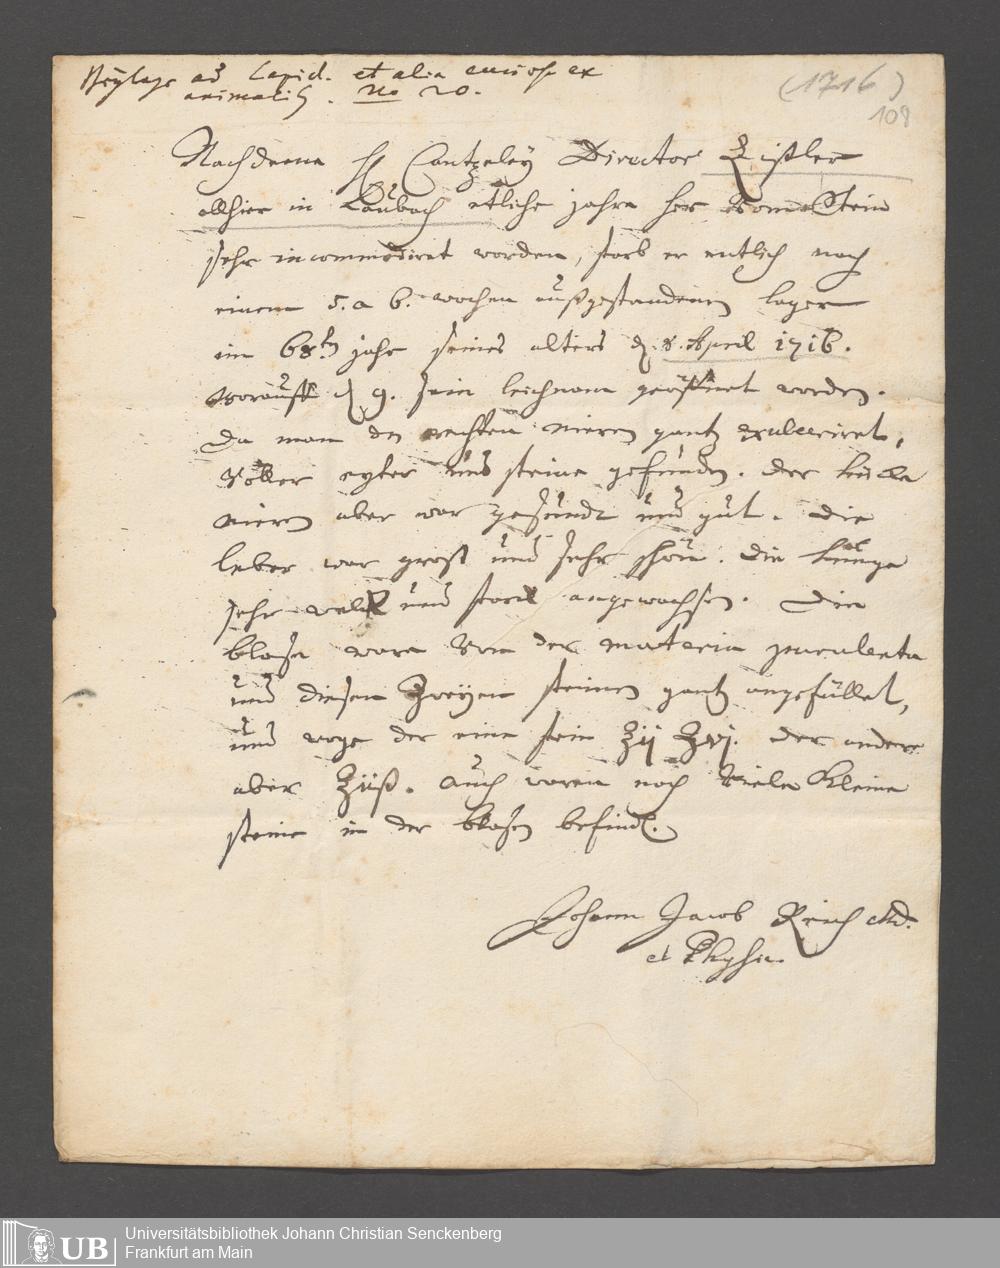 Beylage ad Lapid. et alia curiosa ex
animalib. No 20.
(1716)
108
Nachdeme H Cantzeley Director Zißler
allhier in Laubach etliche jahre her vom Stein
sehr incommodirt worden, starb er entlich nach
einem 5. a 6. wochen außgestandenen lager
im 68ten jahr seines alters d. 8. April 1716.
worauff d 9. sein leichnam geöffnet worden.
Da man den rechten nieren gantz exulcerirt,
voller eyter und steine gefunden. der lincke
nieren aber war gesundt und gut. die
leber war groß und sehr schön. die lunge
sehr welck und starck angewachsen. Die
blase ware von der materia purulenta
und diesen zweyen steinen gantz angefüllet,
und woge der eine stein ʒij ʒvj. der andere
aber ʒijß. auch waren noch viele kleine
steine in der blasen befindl.
Johann Jacob Reich MD.
et Physic.
UB
Universitätsbibliothek Johann Christian Senckenberg
Frankfurt am Main